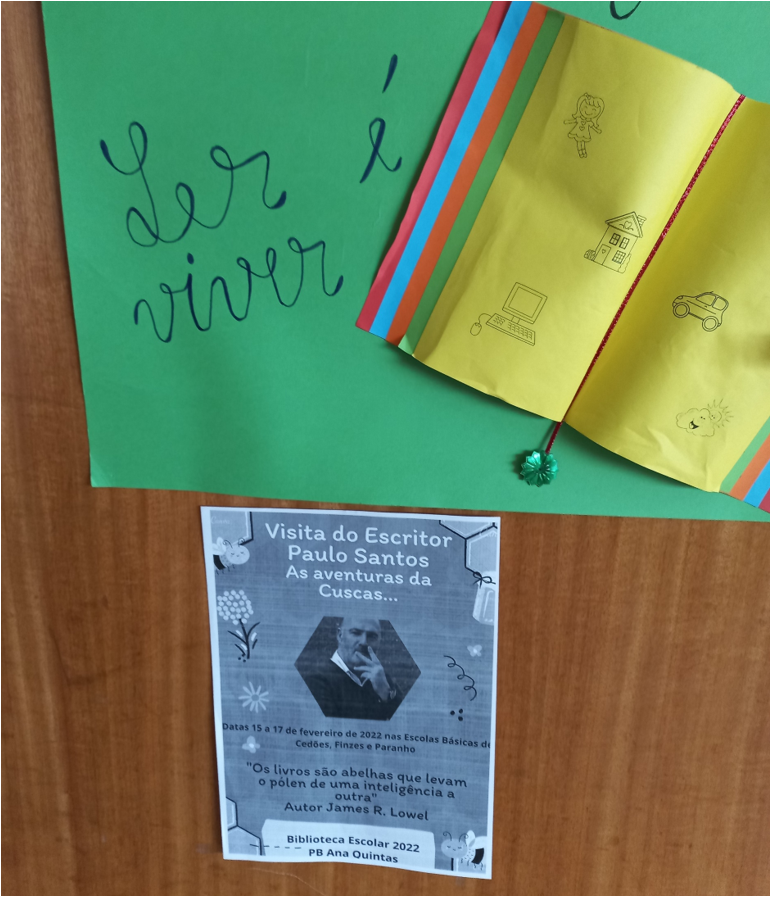 Ler é
viver
Visita do Escritor
Paulo Santos
As aventuras da
Cuscas...
Datas 15 a 17 de fevereiro de 2022 nas Escolas Básicas de
Cedões, Finzes e Paranho
"Os livros são abelhas que levam
o pólen de uma inteligência a
outra"
Autor James R. Lowel
Biblioteca Escolar 2022
PB Ana Quintas